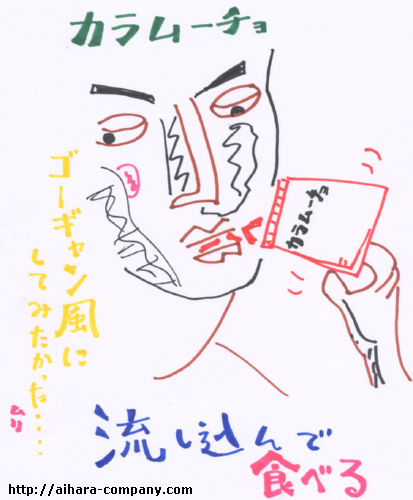 カラムーチョ
カラムーチョ
ゴーギャン風に
してみたかったな・・・・
ムリ
流し込んで
食べる
http://aihara-company.com